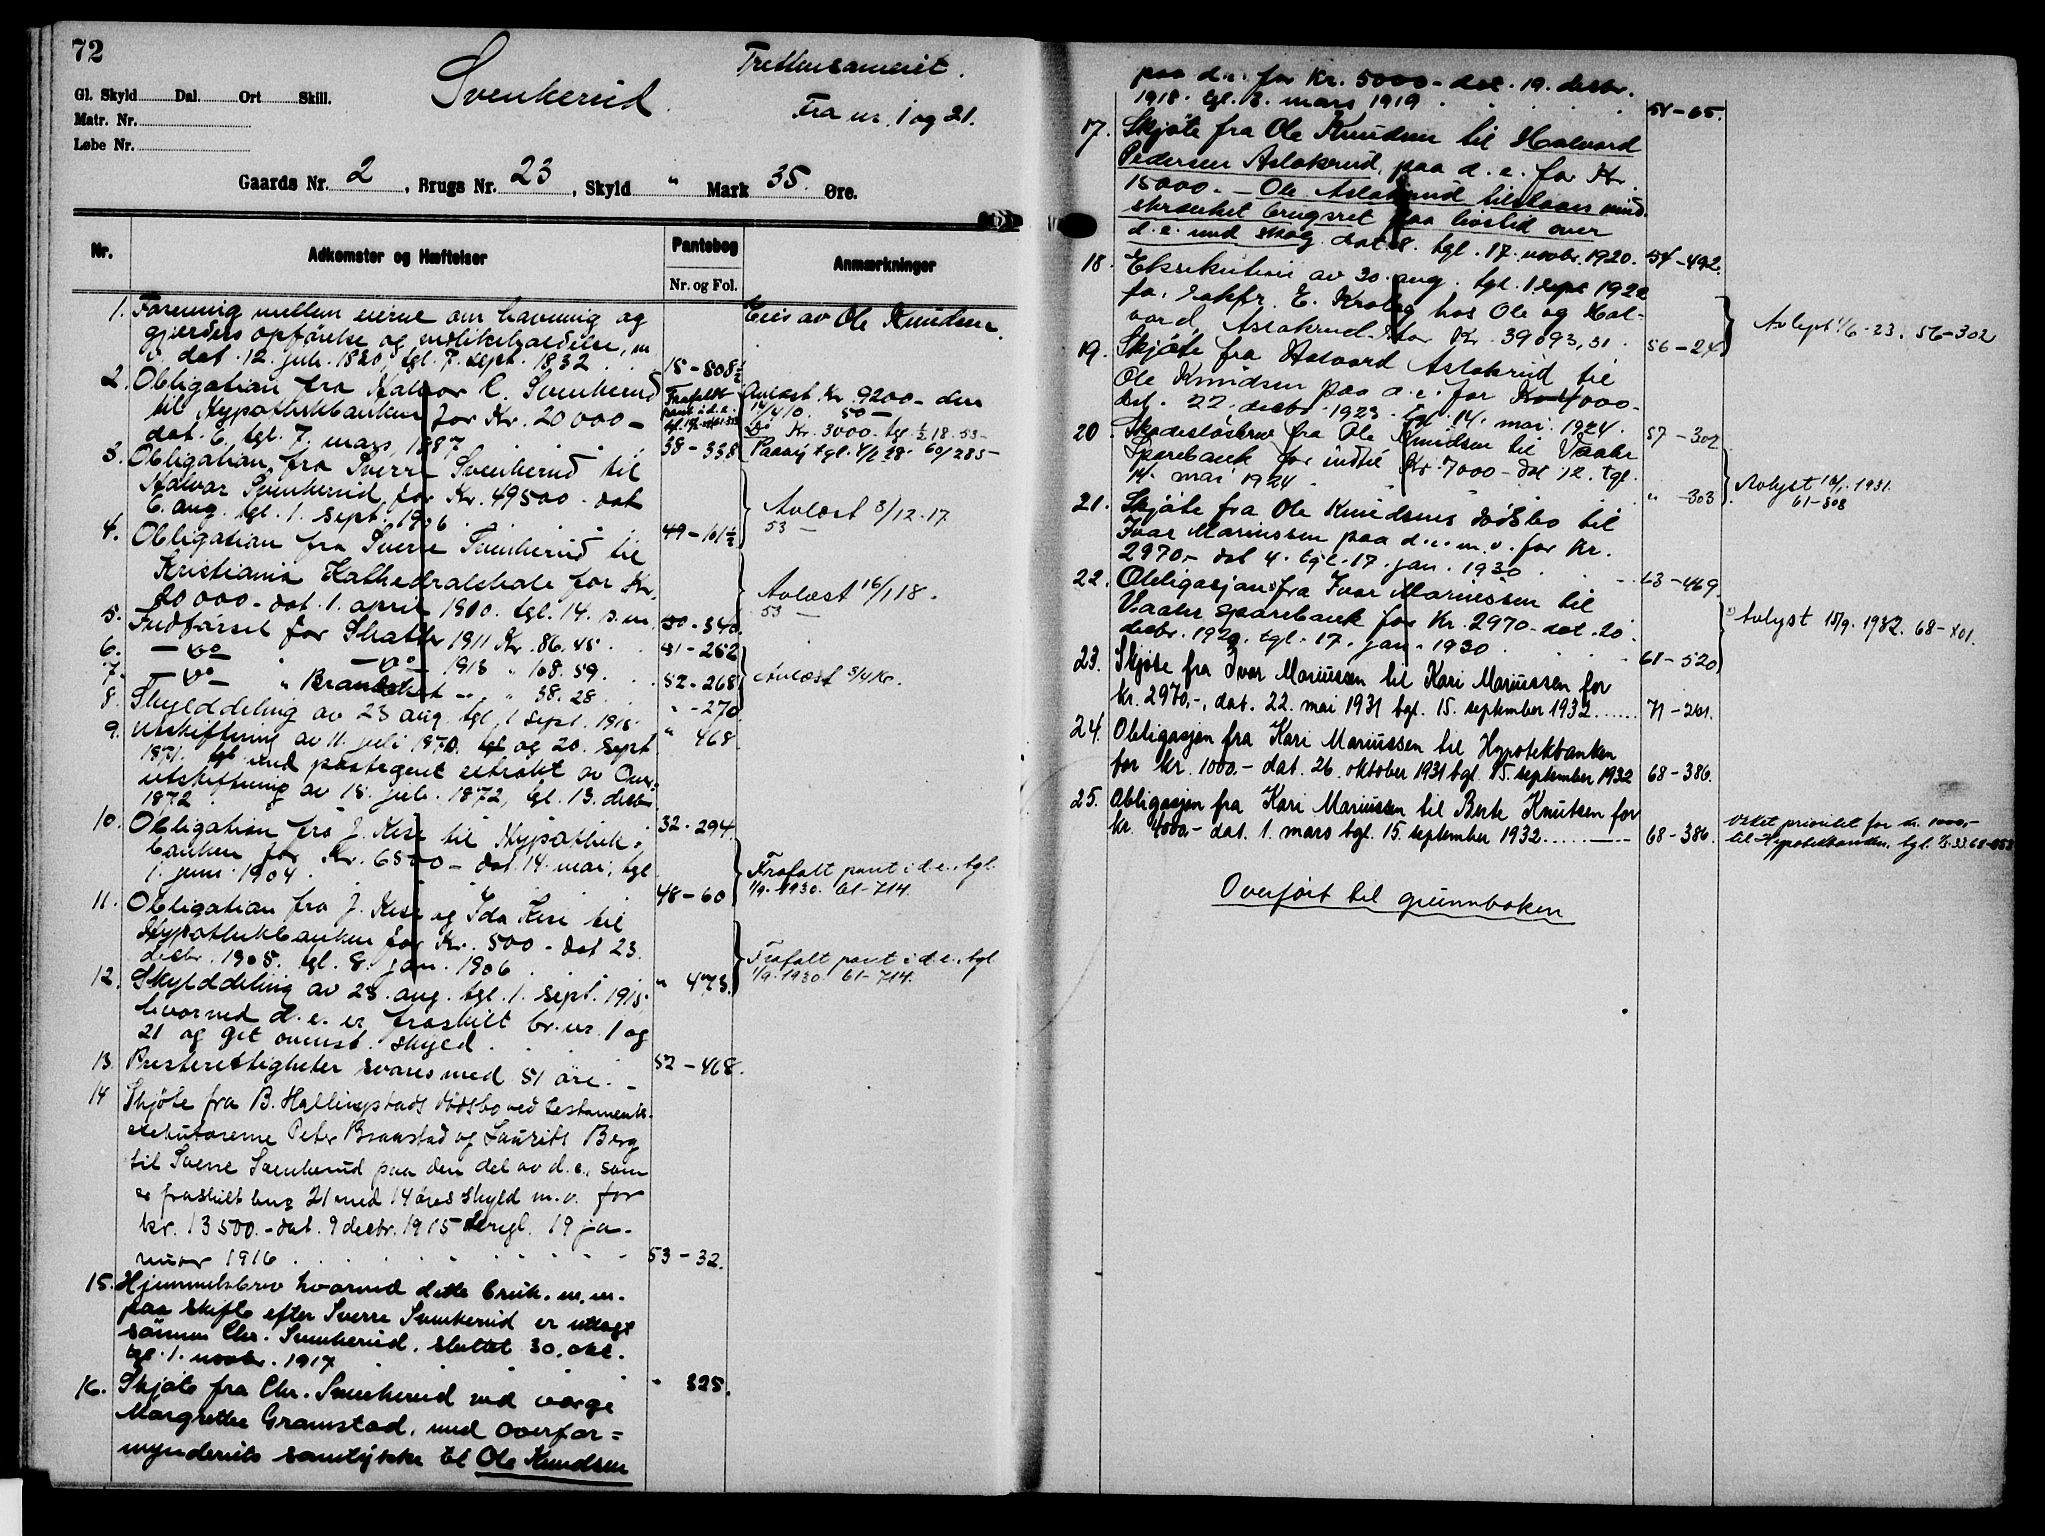 72
Svenkerud.
Trettensameiet.
Fra nr. 1 og 21.
Gl. Skyld Dal. Ort Skill.
Matr. Nr.
Løbe Nr.
Gaards Nr. 2, Brugs Nr. 23, Skyld " Mark 35. Øre.
Nr.
Adkomster og Hæftelser
Pantebog
Nr. og Fol.
Anmærkninger
1. Forening mellem eierne om havning og
gjerders opførelse og vedlikeholdelse, m
v. dat. 12. juli 1820, tgl. 7. sept. 1832 15-808½
Eies av Ole Knudsen.
2. Obligation fra Halvor C. Svenkerud
til Hypothekbanken for Kr. 20 000 -
dat. 6. tgl. 7. mars 1887 38-338
Frafaldt
pant i d.e.
Avlæst Kr. 9200 - den
Do Kr. 3000. tgl. ½ 18. 53-
3. Obligation fra Sverre Svenkerud til
Halvar Svenkerud for Kr. 49500 - dat
6. aug. tgl. 1. sept. 1906 49-161½
Avlæst 3/12.17
53 -
4. Obligation fra Sverre Svenkerud til
Kristiania Kathedralskole for Kr.
20 000 - dat. 1. april 1910. tgl. 14. s.m. 50-340.
Avlæst 16/1 18.
53 -
5. Utdførsel for Skatter 1911 Kr. 86.45 51-252
6. - Do " - Do - 1913 " 168.59. 52-268
7. - Do - " Brandskat - " 38.28 " -270
Avlæst 5/4 16.
8. Skylddeling av 23 aug. tgl. 1 sept. 1915 " 468
9. Utskiftning av 11. juli 1870. tgl og 20. sept
1871. tgl med pastegnet extrakt av Over-
utskiftning av 18. juli. 1872, tgl. 13. decbr
1872. 32-294.
10. Obligation fra J. Kise til Hypothek-
banken for Kr. 6500 - dat. 14. mai, tgl
1. juni 1904. 48-60
Frafalt pant i d.e. tgl.
1/9. 1930. 61-714.
11. Obligation fra J. Kise og Ida Kise til
Hypothekbanken for Kr. 500 - dat 23.
decbr. 1905. tgl. 8. jan. 1906 " 473.
Frafalt pant i d.e. tgl
1/9. 1930. 61-714.
12. Skylddeling av 23. aug. tgl. 1. sept. 1915,
hvorved d.e. er fraskilt br. nr. 1 og
21 og git ovenst. skyld. 52-468.
13. Presterettigheter svares med 51 øre. -
14 Skjøte fra B. Hallingstads dødsbo ved testaments-
executorerne Peter Braastad og Laurits Berg
til Sverre Svenkerud paa den del av d.e. som
er fraskilt bnr 21 med 14 øres skyld m.v. for
kr. 13500.- dat. 9 decbr. 1915 tgl. 19 ja-
nuar 1916 53-32.
15. Hjemmelsbrev hvorved dette bruk. m.m.
paa skifte efter Sverre Svenkerud er utlagt
sønnen Chr. Svenkerud, sluttet 30. okt.
tgl. 1. novbr. 1917. " 325.
16. Skjøte fra Chr. Svenkerud ved værge
Margrethe Gramstad, med overfor-
mynderiets samtykke til Ole Knudsen
paa d.e. for Kr. 5000 - dat. 19. decbr.
1918. tgl. 3. mars 1919. 54-65.
17. Skjøte fra Ole Knudsen til Halvard
Pedersen Aslakrud, paa d.e. for Kr.
15000. - Ole Aslakrud tilstaaes uind-
skrænket bruksret paa livstid over
d.e. med skog. dat. 8. tgl. 17. novbr. 1920. 54-492.
18. Eksekution av 30. aug. tgl. 1. sept 1922
fa. E. Krolog hos Ole og Hal-
vard Aslakrud for Kr. 39093,31. 56-24
Avlyst 1/6-23. 56-302
19. Skjøte fra Halvard Aslakrud til
Ole Knudsen paa d.e. for Kr. 4000 -
dat. 22. decbr. 1923. tgl. 14. mai. 1924. 57-302
20. Skadesløsbrev fra Ole Knudsen til Vaaler
Sparebank for indtil Kr. 7000 - dat 12. tgl.
14. mai 1924. " -303
Avlyst 1931.
61-308
21. Skjøte fra Ole Knudsens dødsbo til
Ivar Mariussen paa d.e. m.v. for Kr.
2970,- dat 4. tgl. 17. jan. 1930. 63-469
22. Obligasjon fra Ivar Mariussen til
Vaaler sparebank for Kr. 2970 - dat. 20.
decbr. 1929. tgl. 17. jan. 1930. 61-520
Avlyst 15/9. 1932. 68-401.
23. Skjøte fra Ivar Mariussen til Kari Mariussen for
kr. 2970,-, dat. 22. mai 1931 tgl. 15. september 1932 71-201.
24. Obligasjon fra Kari Mariussen til Hypotekbanken
for kr. 1000.- dat. 26. oktober 1931 tgl. 15. september 1932 68-386.
25. Obligasjon fra Kari Mariussen til Berte Knutsen for
kr. 4000,- dat. 1. mars tgl. 15. september 1932 68-386.
Veket prioritet for kr. 1000,-
til Hypotekbanken, tgl.
Overført til grunnboken